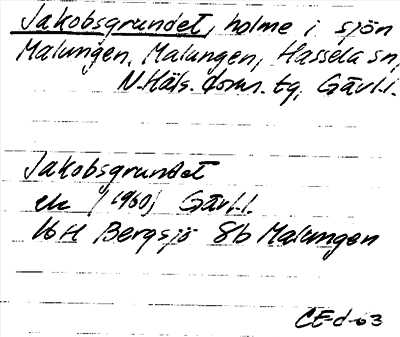 Jakobsgrundet, holme i sjön
Malungen, Malungen, Hassela sn,
N. Häls. doms. tg, Gävl.l.
Jakobsgrundet
ek (1960) Gävl.l.
16H Bergsjö 8b Malungen
CE-d-63